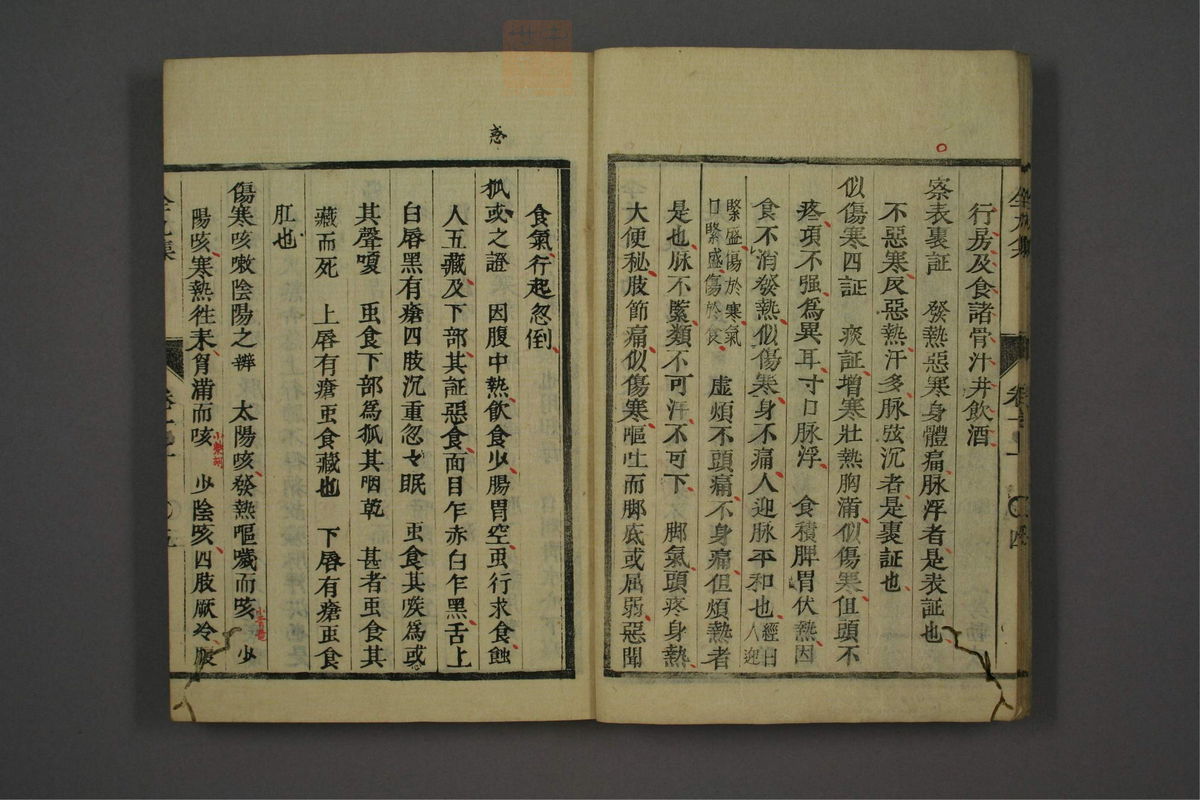 行房及食諸骨汁并飲酒
察表裏証 發熱惡寒身體痛脉浮者是表証也
不惡寒反惡熱汗多脉弦沉者是裏証也
似傷寒四証 痰証增寒壯熱胸滿似傷寒但頭不
疼項不强爲異耳寸口脉浮 食積脾胃伏熱因
食不消發熱似傷寒身不痛人迎脉平和也經曰人迎
緊盛傷於寒氣口緊盛傷於食 虛煩不頭痛不身痛但煩熱者
是也脉不緊類不可汗不可下 脚氣頭疼身熱
大便秘肢節痛似傷寒嘔吐而脚底或屈弱惡聞
食氣行起忽倒
惑
狐或之證 因腹中熱飲食少腸胃空虫行求食蝕
人五藏及下部其証惡食面目乍赤白乍黑舌上
白唇黑有瘡四肢沉重忽々眠 虫食其喉爲惑
其聲嗄 虫食下部爲狐其咽乾 甚者虫食其
藏而死 上唇有瘡虫食藏也 下唇有瘡虫食
肛也
傷寒咳嗽陰陽之辨 太陽咳發熱嘔噦而咳 少
陽咳寒熱徃來胷滿而咳 小柴胡 少陰咳四肢厥冷腹